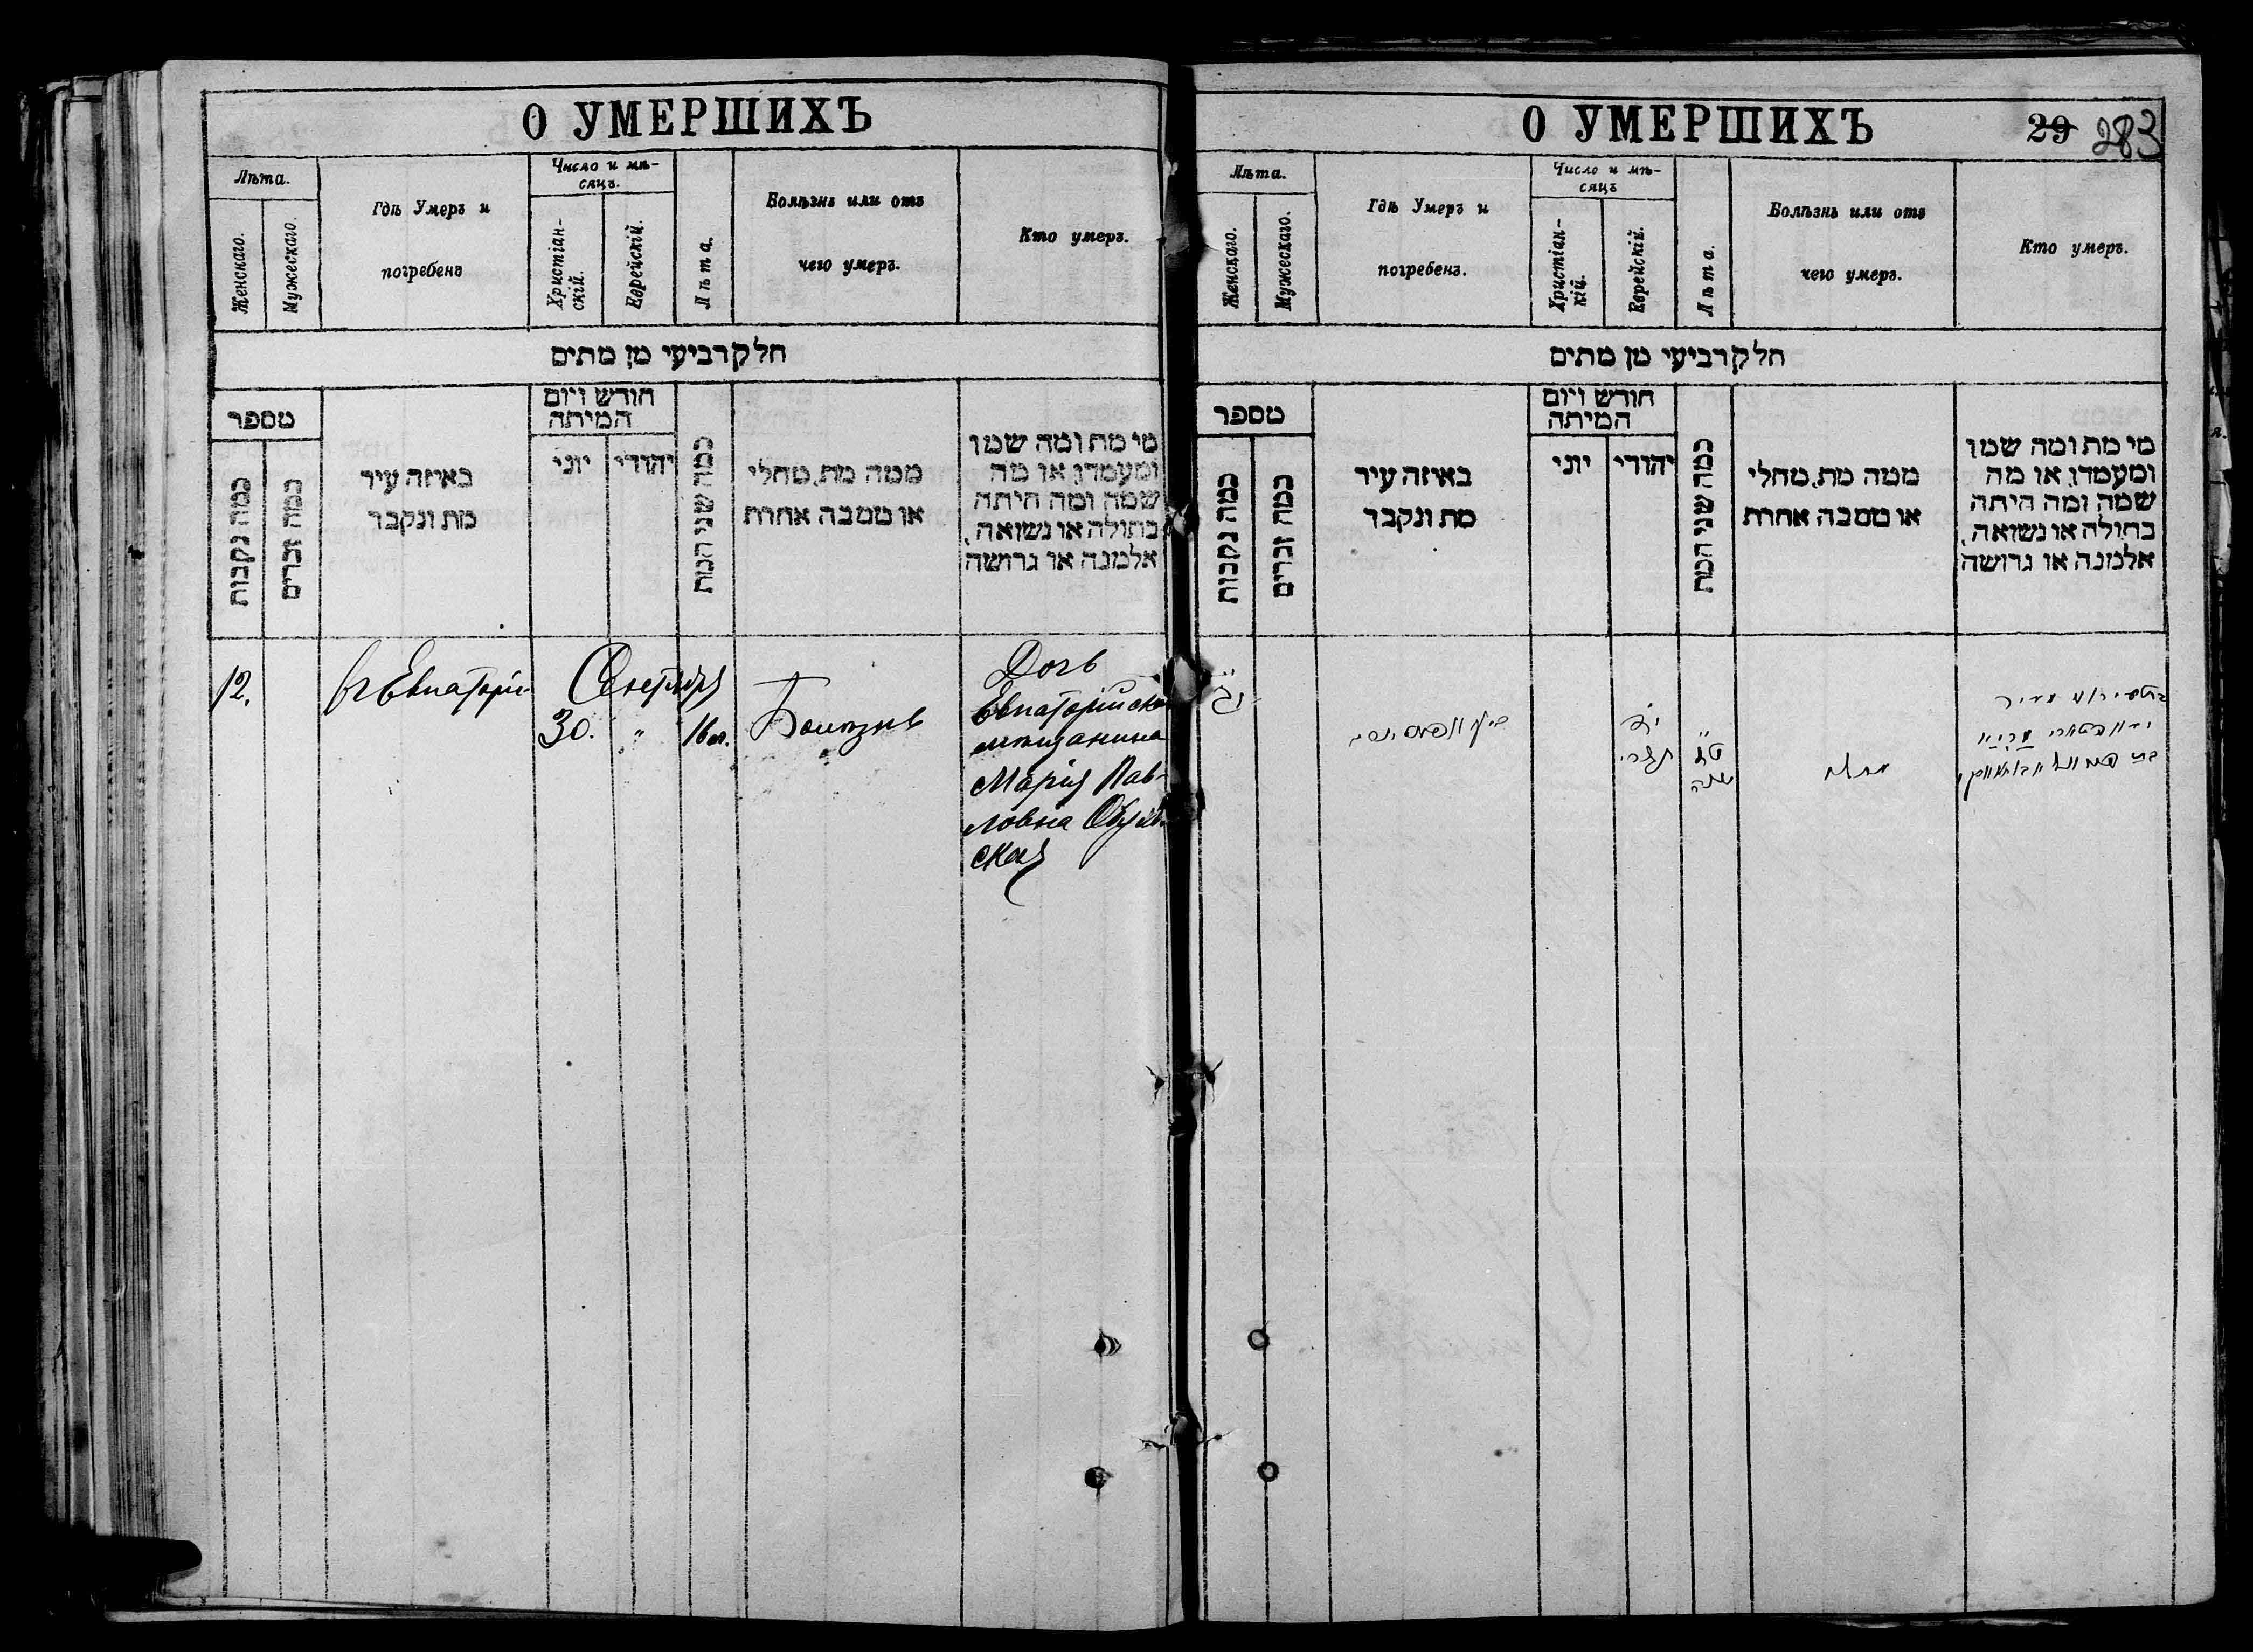 О УМЕРШИХЪ
Лѣта.
Женскаго.
Мужескаго.
Гдѣ Умеръ и
погребенъ
Число и мѣ-
сяцъ.
Христіан-
скій.
Еврейскій.
Лѣта.
Болѣзнь или отъ
чего умеръ.
Кто умеръ.
חלק רביעי מן מתים
מספר
כמה נקבות
כמה זכרים
באיזה עיר
מת ונקבר
חודש ויום
המיתה
יוני
יהודי
כמה שני המת
ממה מת, מחלי
או מסבה אחרת
מי מת ומה שמו
ומעמדו, או מה
שמה ומה היתה
בתולה או נשואה,
אלמנה או גרושה
12.
Сентября
30.
"
16 л.
Болѣзнь
Дочь
Евпаторійска
мѣщанина
Марія Пав-
ловна
ская
О УМЕРШИХЪ
29 283
Лѣта.
Женскаго.
Мужескаго.
Гдѣ Умеръ и
погребенъ.
Число и мѣ-
сяцъ
Христіан-
кій.
Еврейскій.
Лѣта.
Болѣзнь или отъ
чего умеръ.
Кто умеръ.
חלק רביעי מן מתים
מספר
כמה נקבות
כמה זכרים
באיזה עיר
מת ונקבר
חודש ויום
המיתה
יוני
יהודי
כמה שני המת
ממה מת, מחלי
או מסבה אחרת
מי מת ומה שמו
ומעמדו, או מה
שמה ומה היתה
בתולה או נשואה,
אלמנה או גרושה
תשרי
שנה